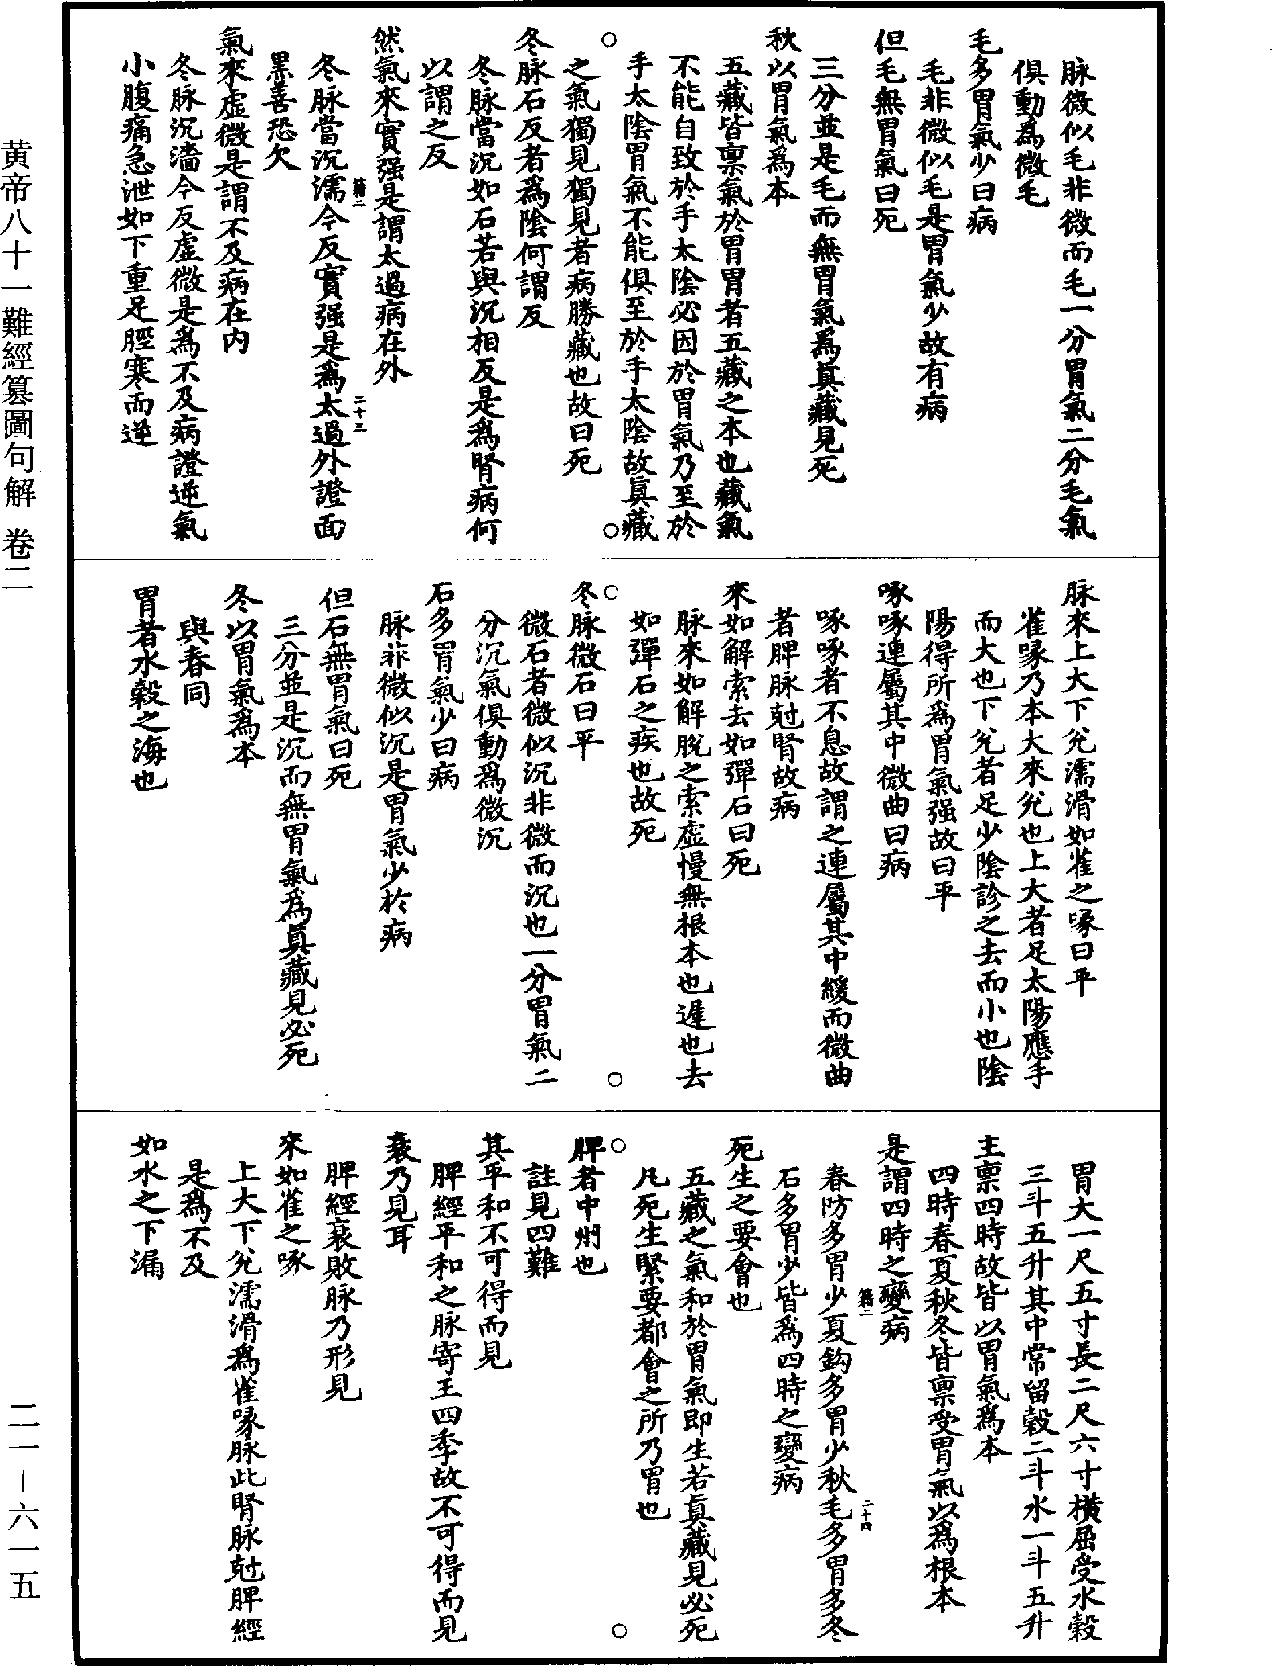 黄帝八十一難經纂圖句解 卷二
二一—六一五
脉微似毛非微而毛一分胃氣二分毛氣
俱動為微毛
毛多胃氣少曰病
毛非微似毛是胃氣少故有病
但毛無胃氣曰死
三分並是毛而無胃氣為真藏見死
秋以胃氣為本
五藏皆禀氣於胃胃者五藏之本也藏氣
不能自致於手太陰必因於胃氣乃至於
手太陰胃氣不能俱至於手太陰故真藏
之氣獨見獨見者病勝藏也故曰死
冬脉石反者為陰何謂反
冬脉當沉如石若與沉相反是為腎病何
以謂之反
然氣來實强是謂太過病在外
冬脉當沉濡今反實强是為太過外證面
黑善恐欠
氣來虛微是謂不及病在内
冬脉沉濇今反虛微是為不及病證逆氣
小腹痛急泄如下重足脛寒而逆
難二
二十三
脉來上大下兊濡滑如雀之啄曰平
雀啄乃本大來兊也上大者足太陽應手
而大也下兊者足少陰診之去而小也陰
陽得所為胃氣强故曰平
啄啄連屬其中微曲曰病
啄啄者不息故謂之連屬其中緩而微曲
者脾脉尅腎故病
來如解索去如彈石曰死
脉來如解脫之索虛慢無根本也遲也去
如彈石之疾也故死
冬脉微石曰平
微石者微似沉非微而沉也一分胃氣二
分沉氣俱動為微沉
石多胃氣少曰病
脉非微似沉是胃氣少於病
但石無胃氣曰死
三分並是沉而無胃氣為真藏見必死
冬以胃氣為本
與春同
胃者水穀之海也
胃大一尺五寸長二尺六寸橫屈受水穀
三斗五升其中常留穀二斗水一斗五升
主禀四時故皆以胃氣為本
四時春夏秋冬皆禀受胃氣以為根本
是謂四時之變病
春防多胃少夏鈎多胃少秋毛多胃多冬
石多胃少皆為四時之變病
死生之要會也
五藏之氣和於胃氣即生若真藏見必死
凡死生緊要都會之所乃胃也
脾者中州也
註見四難
其平和不可得而見
脾經平和之脉寄王四季故不可得而見
衰乃見耳
脾經衰敗脉乃形見
來如雀之啄
上大下兊濡滑為雀啄脉此腎脉尅脾經
是為不及
如水之下漏
難二
二十四